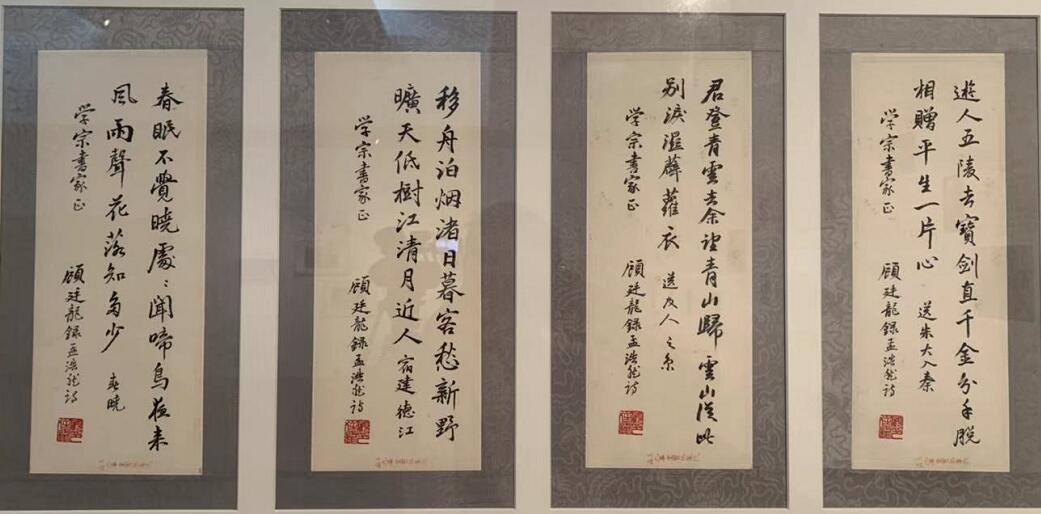 遊人五陵去寶劍直千金分手脫
相贈平生一片心 送朱大入秦
学宗書家正
顧廷龍録孟浩然詩
君登青雲去余望青山歸雲山従此
别淚濕薜蘿衣 送友人之京
学宗書家正
顧廷龍録孟浩然詩
移舟泊烟渚日暮客愁新野
曠天低樹江清月近人 宿建德江
学宗書家正
顧廷龍録孟浩然詩
春眠不覺曉處〻聞啼鳥夜来
風雨聲花落知多少 春曉
学宗書家正
顧廷龍録孟浩然詩